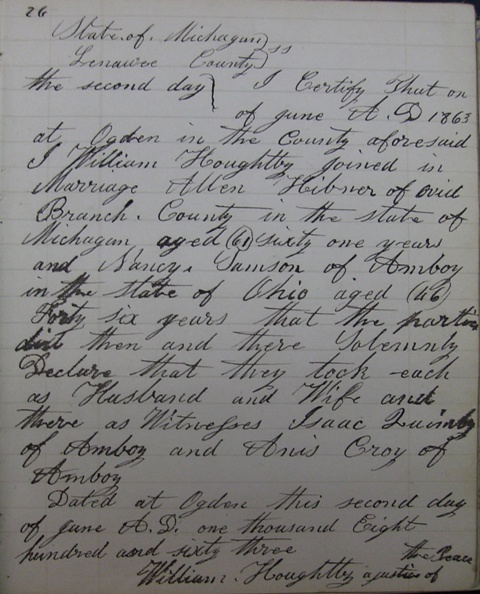 26
State of Michagan
Lenawee County ss
the second day I Certify That on
of june A.D 1863
at Ogden in the County aforesaid
I William Houghtby joined in
Marriage Allen Hibner of ovid
Branch. County in the state of
Michagan aged (61) sixty one years
and Nancy. Samson of Amboy
in the state of Ohio aged (46)
Forty six years that the parties
did then and there Solemnly
Declare that they tock each
as Husband and Wife and
there as Witnesses Isaac Quimby
of Amboy and Anis Croy of
Amboy
Dated at Ogden this second day
of june A.D. one thousand Eight
hundred and sixty three
William. Houghtby a justice of
the Peace